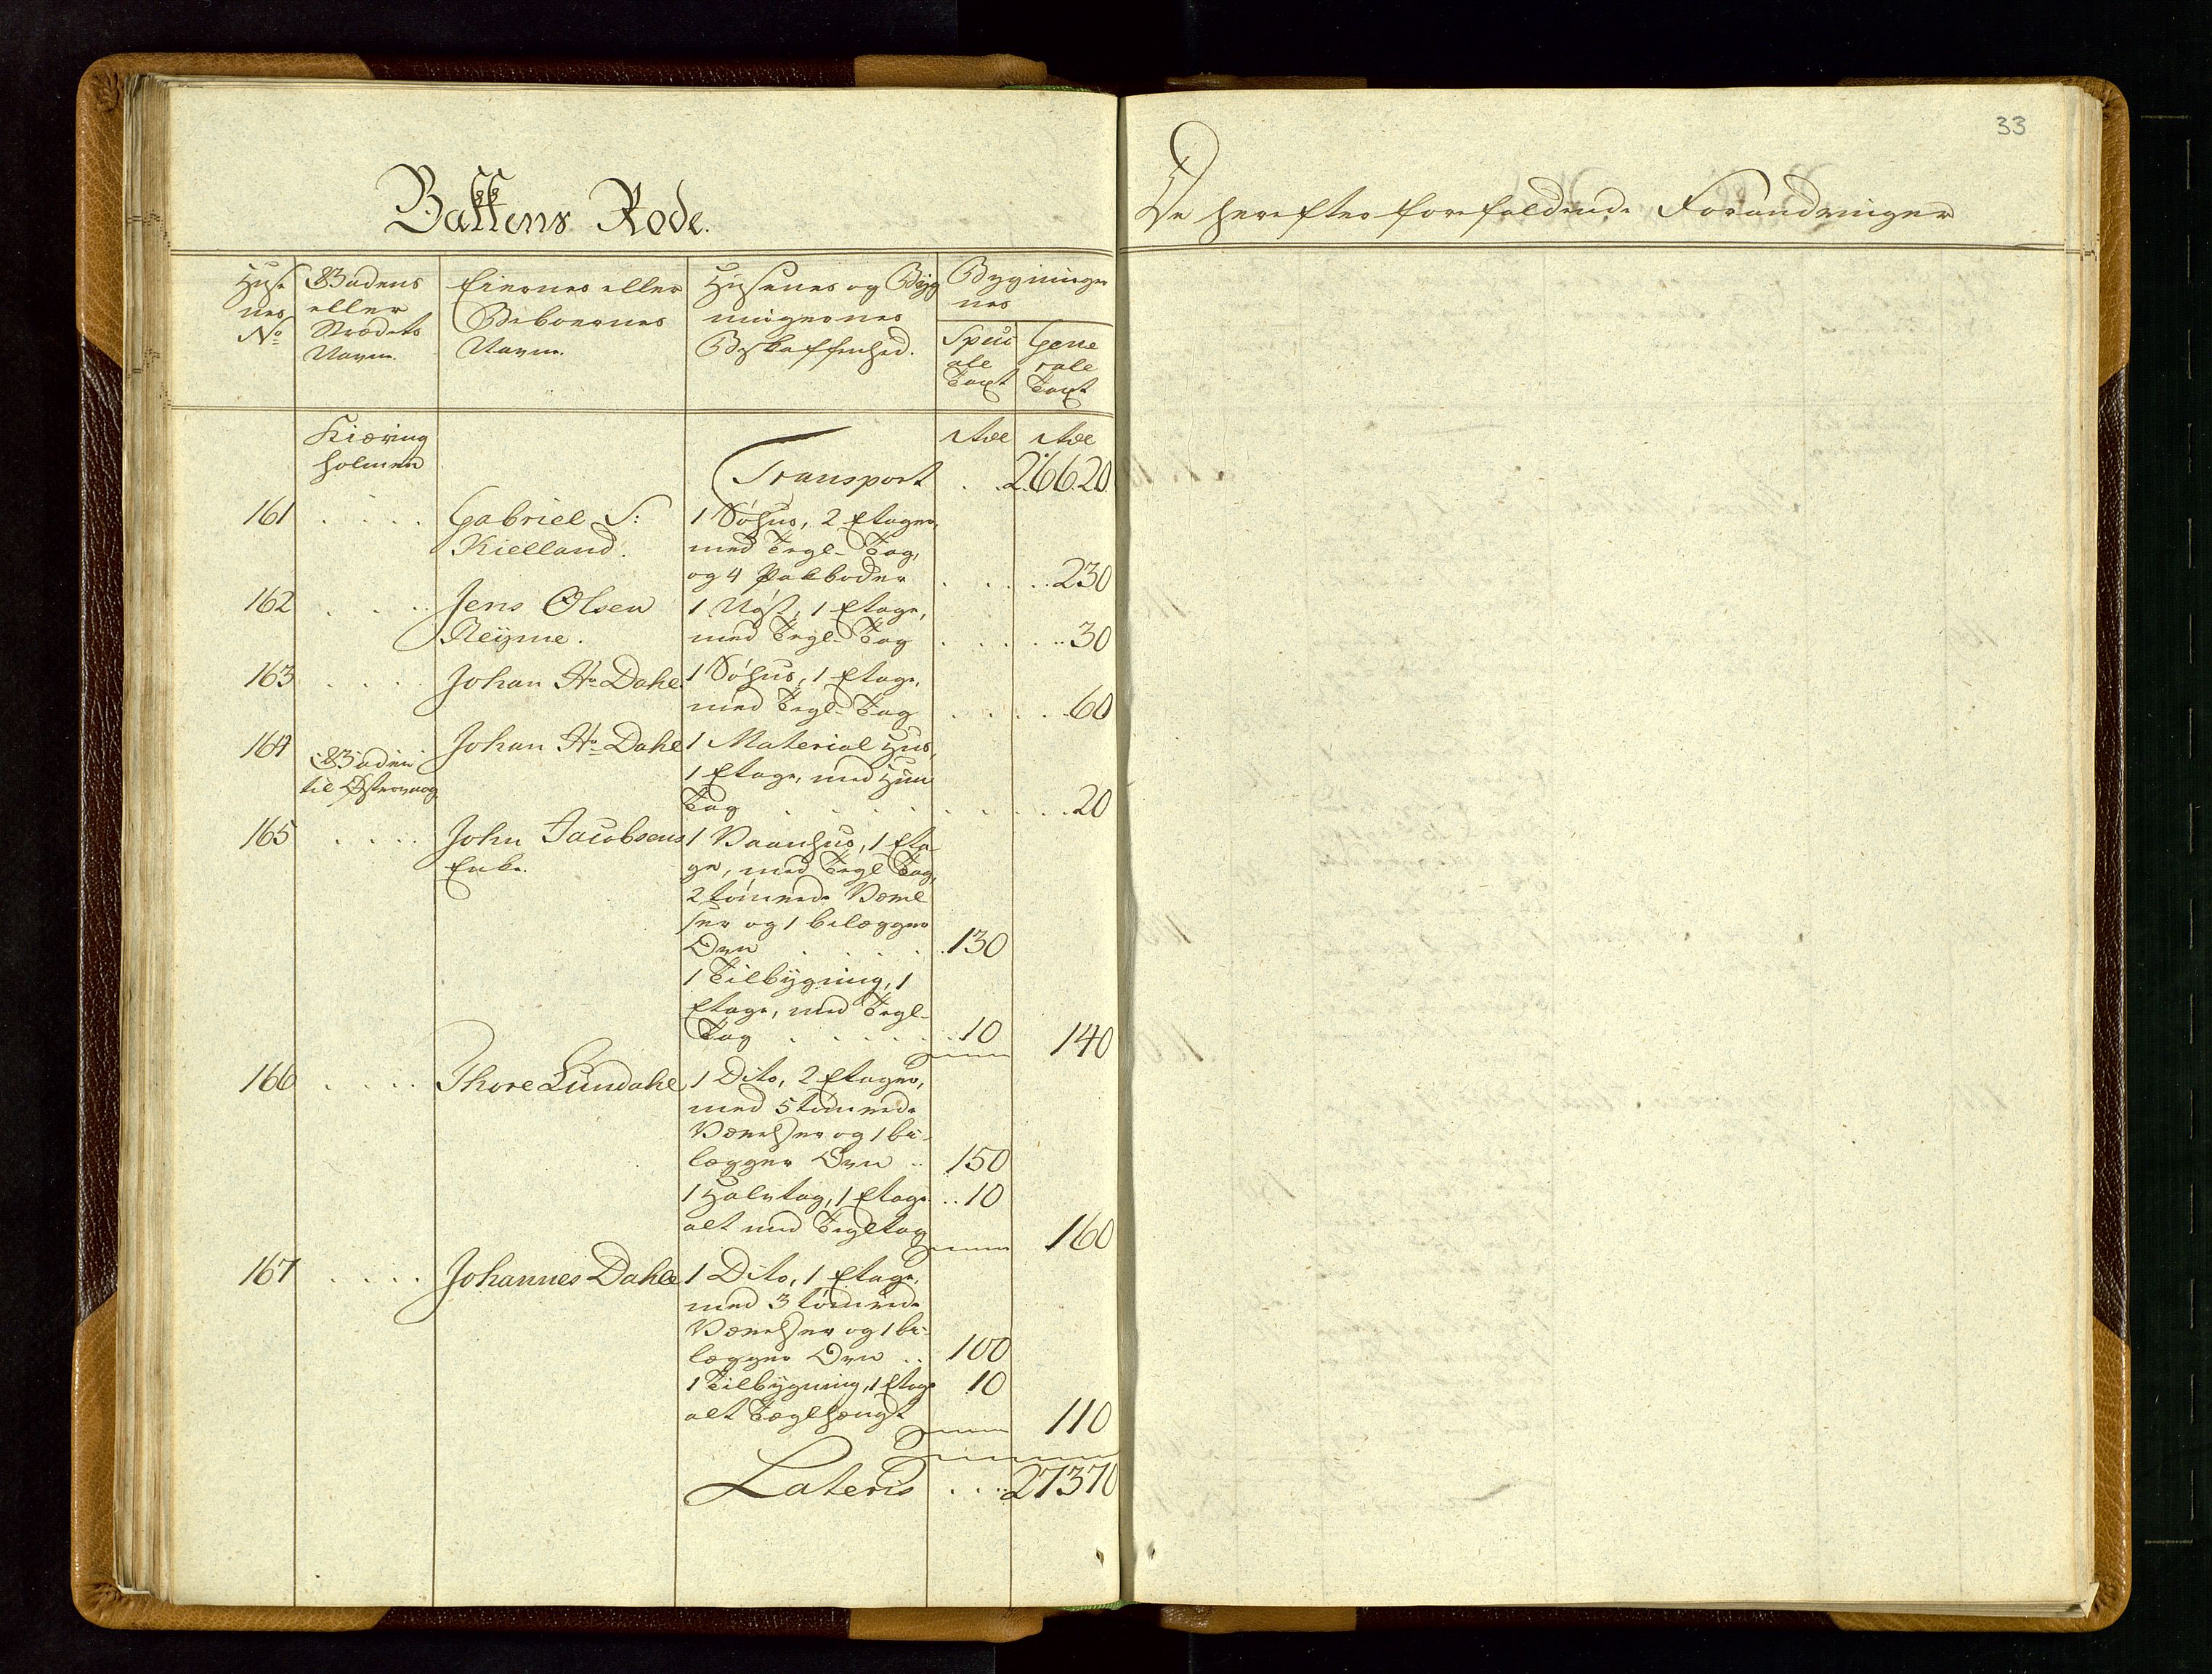 Bakkens Rode.
Huse
nes
No
Gadens
eller
Strædets
Navn.
Eiernes eller
Beboernes
Navn.
Husenes og Byg
ningernes
Beskaffenhed.
Bygninger
nes
Speci
ale
Taxt
Gene
rale
Taxt
Kiæring
holmen
Rdl
Rdl
Transport . . 26620.
161 . . . . Gabriel S: 1 Søhus, 2 Etager,
Kielland. med Tegl-Tag,
og 4 Pakboder . . . . 230
162 . . . . Jens Olsen 1 Nøst, 1 Etage,
Reyme. med Tegl-Tag . . . . 30
163 . . . . Johan Hr Dahl 1 Søhus, 1 Etage,
med Tegl-Tag . . . . 60
164 Johan Hr Dahl 1 Material Huus,
Gaden
til Østervaag
1 Etage, med Huun
Tag . . . . 20
165 . . . . John Jacobsens 1 Vaanhus, 1 Eta-
Enke. ge, med Tegl Tag,
2 tømrede Værel
ser og 1 bilægger
Ovn . . . . 130
1 Tilbygning, 1
Etage, med Tegl-
Tag . . . . 10 140
166 . . . . Thore Lundahl 1 Dito, 2 Etager,
med 5 tømrede
Værelser og 1 bi-
lægger Ovn .. 150
1 Halvtag, 1 Etage .. 10
alt med Tegltag 160
167 . . . . Johannes Dahle 1 Dito, 1 Etage,
med 3 tømrede
Værelser og 1 bi-
lægger Ovn .. 100
1 Tilbygning, 1 Etage 10
alt Teglhængt 110
Lateris . . . 27370
33
De herefter forefaldende Forandringer